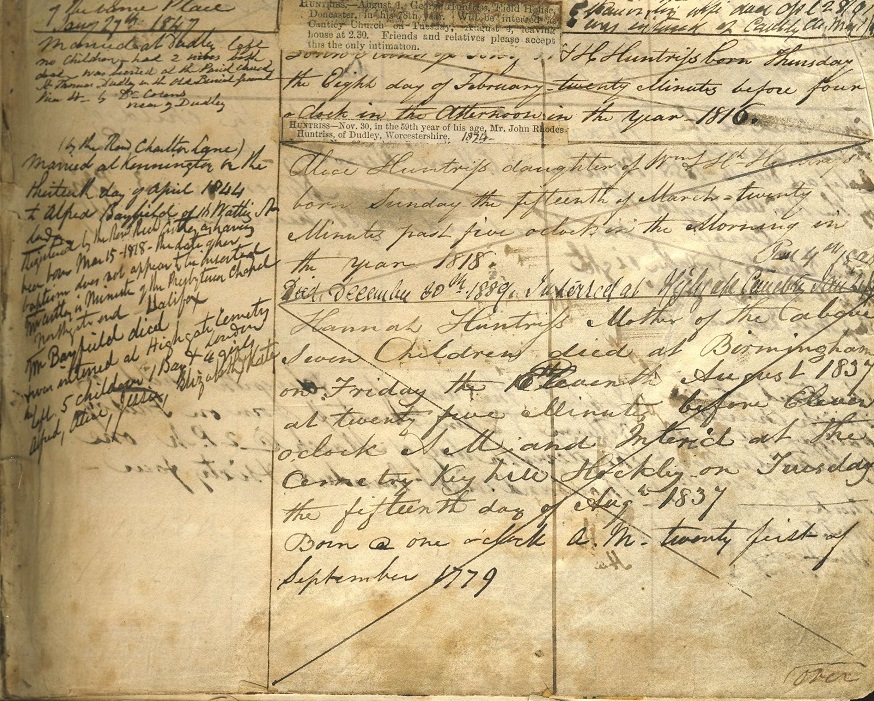 Place
Jany 27th 1847
Married at Dudley left
no children, had 2 wives both
dead was buried at the Parish Church
St Thomas Dudley in the old Burial ground
near Dudley
(by the Revd Charlton Lane)
Married at Kennington on the
thirtieth day of April 1844
to Alfred Bayfield of
been born Mar 15 - 1818 - the date of her
baptism does not appear to be inserted
is Minister of the Presbyterian Chapel
Northgate end Halifax
Mr Bayfield died
& was interred at Highgate Cemetery
London
left 5 children 1 Boy & 4 girls
Alfred, Alice, Jessie, Elizabeth, Kate
HUNTRISS.—August 1, George Huntriss, Field House,
Doncaster, in his 78th year. Will be interred at
Cantley Church on Tuesday, August 4, leaving
house at 2.30. Friends and relatives please accept
this the only intimation.
wife died
was
H Huntriss born Thursday
the Eight day of February - twenty Minutes before four
o Clock in the Afternoon in the year 1816.
HUNTRISS—Nov. 30, in the 59th year of his age, Mr. John Rhodes
Huntriss, of Dudley, Worcestershire. 1874
Alice Huntriss daughter of Wm & Hh
born Sunday the fifteenth of March - twenty
Minutes past five oclock in the Morning in
the year 1818.
Died December 30th 1889. Interred at Highgate
Hannah Huntriss Mother of the above
Seven Children died at Birmingham
on Friday the Eleventh August 1837
at twenty five Minutes before Eleven
oClock A M and Interid at the
Cemetry Key hill Hockley on Tuesday
the fifteenth day of Augt 1837
Born @ one oclock A.M. twenty first of
September 1779
over